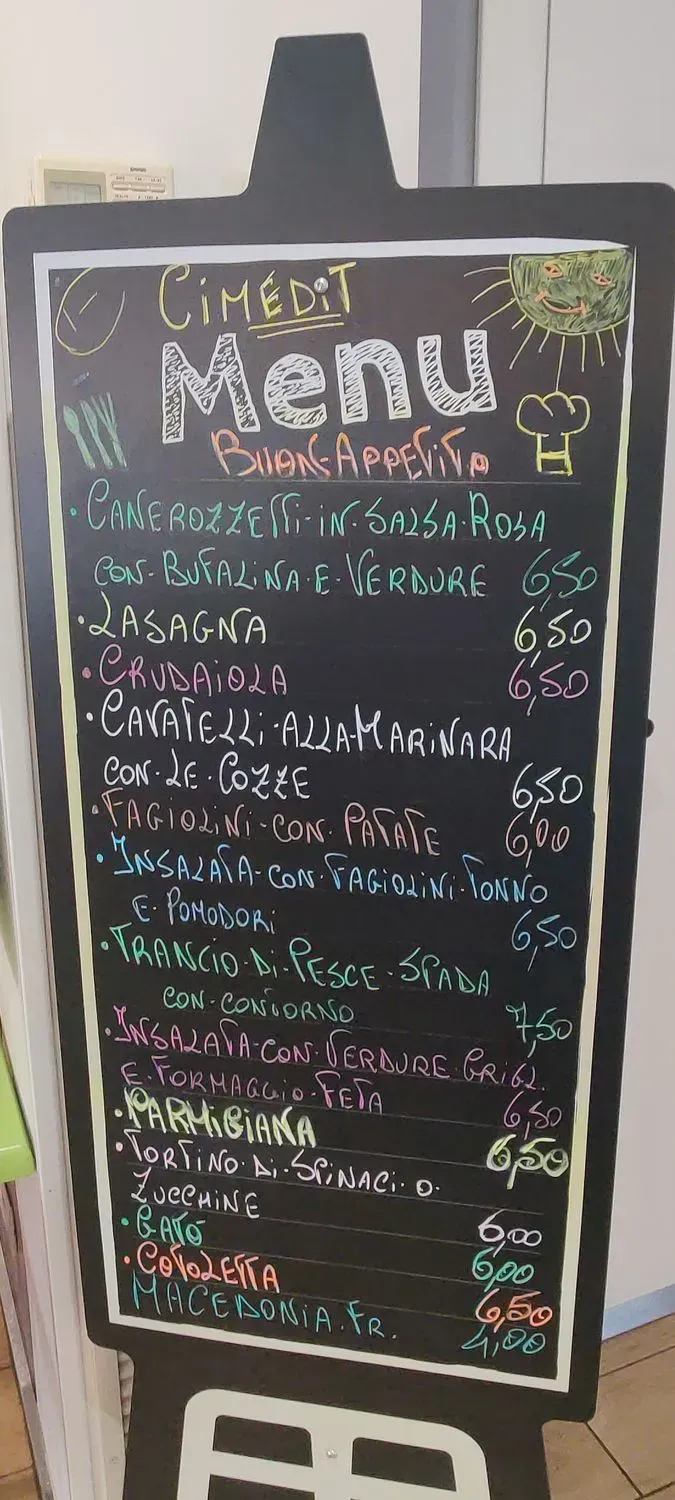 CiMEDiT
Menu
BUON·APPETITO
·CANEROZZETTi·iN·SALSA·ROSA
CON·BUFALINA·E·VERDURE 6,50
·LASAGNA 6,50
·CRUDAiOLA 6,50
·CAVATELLi·ALLA·MARiNARA
CON·LE·COZZE 6,50
·FAGiOLiNi·CON·PATATE 6,00
·INSALATA·CON·FAGiOLiNi·TONNO
E·POMODORi 6,50
·TRANCiO·Di·PESCE·SPADA
CON·CONTORNO 7,50
·INSALATA·CON·VERDURE·GRiGL.
E·FORMAGGiO·FETA 6,50
·PARMiGiANA 6,50
·TORTiNO·Di·SPiNACi·O·
ZUCCHiNE 6,00
·GATÓ 6,00
·COTOLETTA 6,50
MACEDONiA·FR. 4,00